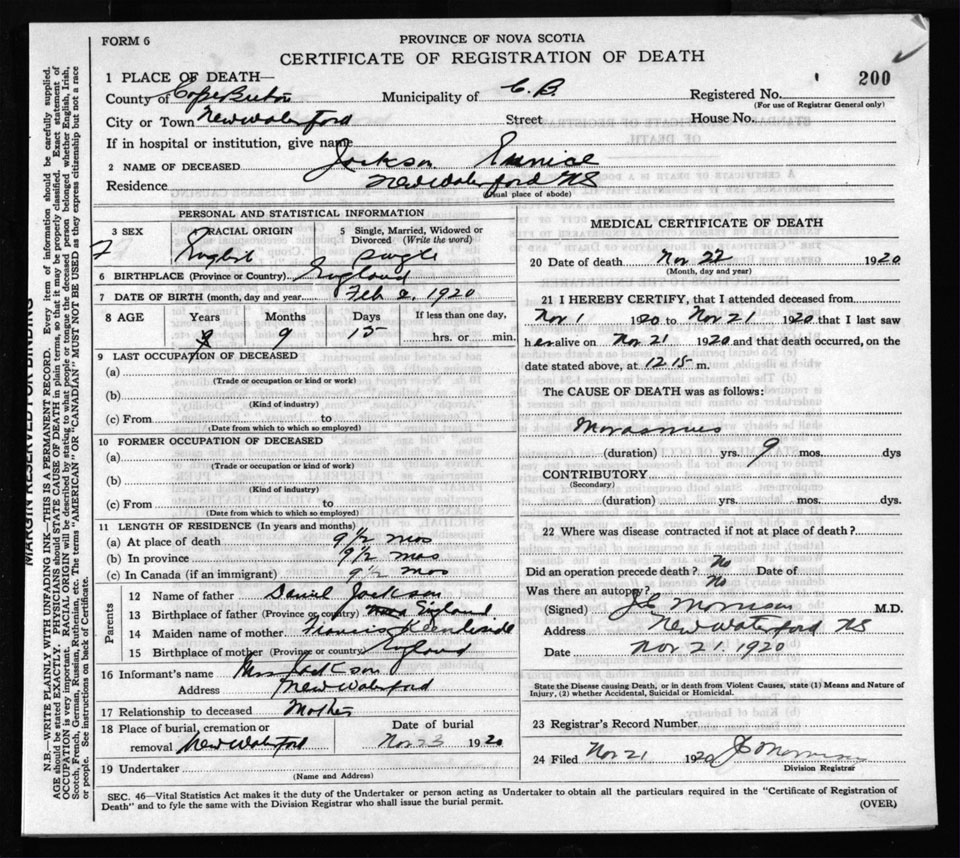 FORM 6
PROVINCE OF NOVA SCOTIA
CERTIFICATE OF REGISTRATION OF DEATH
200
1 PLACE OF DEATH—
County of Cape Breton Municipality of C. B. Registered No.
(For use of Registrar General only)
City or Town New Waterford Street House No.
If in hospital or institution, give name
2 NAME OF DECEASED Jackson Eunice
Residence New Waterford NS
(Usual place of abode)
PERSONAL AND STATISTICAL INFORMATION
3 SEX 4 RACIAL ORIGIN 5 Single, Married, Widowed or Divorced (Write the word)
F English single
6 BIRTHPLACE (Province or Country) England
7 DATE OF BIRTH (month, day and year) Feb 1920
8 AGE Years Months Days If less than one day,
9 15 hrs. or min.
9 LAST OCCUPATION OF DECEASED
(a)
(Trade or occupation or kind or work)
(b)
(Kind of industry)
(c) From to
(Date from which to which so employed)
10 FORMER OCCUPATION OF DECEASED
(a)
(Trade or occupation or kind of work)
(b)
(Kind of industry)
(c) From to
(Date from which to which so employed)
11 LENGTH OF RESIDENCE (In years and months)
(a) At place of death 9 1/2 mos
(b) In province 9 1/2 mos
(c) In Canada (if an immigrant) 9 1/2 mos
Parents
12 Name of father Daniel Jackson
13 Birthplace of father (Province or country) England
14 Maiden name of mother
15 Birthplace of mother (Province or country) England
16 Informant's name Mrs Jackson
Address New Waterford
17 Relationship to deceased Mother
18 Place of burial, cremation or Date of burial
removal New Waterford Nov 23 1920
19 Undertaker
(Name and Address)
MEDICAL CERTIFICATE OF DEATH
20 Date of death Nov 22 1920
(Month, day and year)
21 I HEREBY CERTIFY, that I attended deceased from
Nov 1 1920 to Nov 21 1920 that I last saw
her alive on Nov 21 1920 and that death occurred, on the
date stated above, at 12 15 m.
The CAUSE OF DEATH was as follows:
Morasmus
(duration) yrs. 9 mos. dys
CONTRIBUTORY
(Secondary)
(duration) yrs. mos. dys.
22 Where was disease contracted if not at place of death?
Did an operation precede death? No Date of
Was there an autopsy? No
(Signed) Morrison M.D.
Address New Waterford NS
Date Nov 21. 1920
State the Disease causing Death, or in death from Violent Causes, state (1) Means and Nature of
Injury, (2) whether Accidental, Suicidal or Homicidal.
23 Registrar's Record Number
24 Filed Nov 21 1920 Morrison
Division Registrar
SEC. 46—Vital Statistics Act makes it the duty of the Undertaker or person acting as Undertaker to obtain all the particulars required in the "Certificate of Registration of
Death" and to fyle the same with the Division Registrar who shall issue the burial permit.
(OVER)
MARGIN RESERVED FOR BINDING
N.B.—WRITE PLAINLY WITH UNFADING INK—THIS IS A PERMANENT RECORD. Every item of information should be carefully supplied.
AGE should be stated EXACTLY. PHYSICIANS should STATE CAUSE OF DEATH in plain terms, so that it may be properly classified. Exact statement of
OCCUPATION is very important. RACIAL ORIGIN will be described by stating to what people or tongue the deceased person belonged whether English, Irish,
Scotch, French, German, Russian, Ruthenian, etc. The terms "AMERICAN" OR "CANADIAN" MUST NOT BE USED as they express citizenship but not a race
or people. See instructions on back of Certificate.